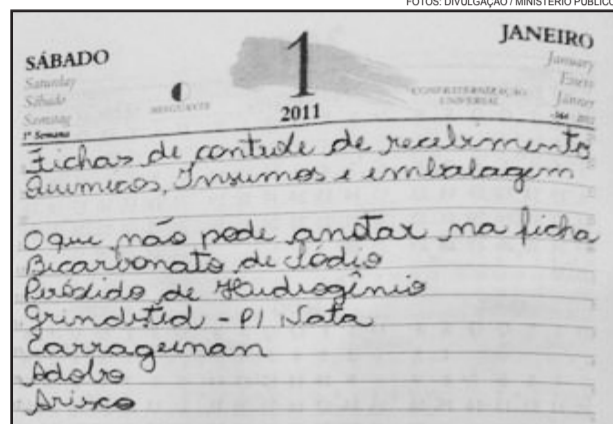 FOTOS: DIVULGAÇÃO / MINISTÉRIO PÚBLICO
SÁBADO
Saturday
Sábado
Samstag
1ª Semana
MINGUANTE
1
2011
CONFRATERNIZAÇÃO
UNIVERSAL
JANEIRO
January
Enero
Januar
Fichas de controle de recebimento
Quimicos, Insumos e embalagem
O que não pode anotar na ficha
Bicarbonato de Sódio
Peróxido de Hidrogênio
Grindsted - P/ Nata
Carrageenan
Adobo
Arisco